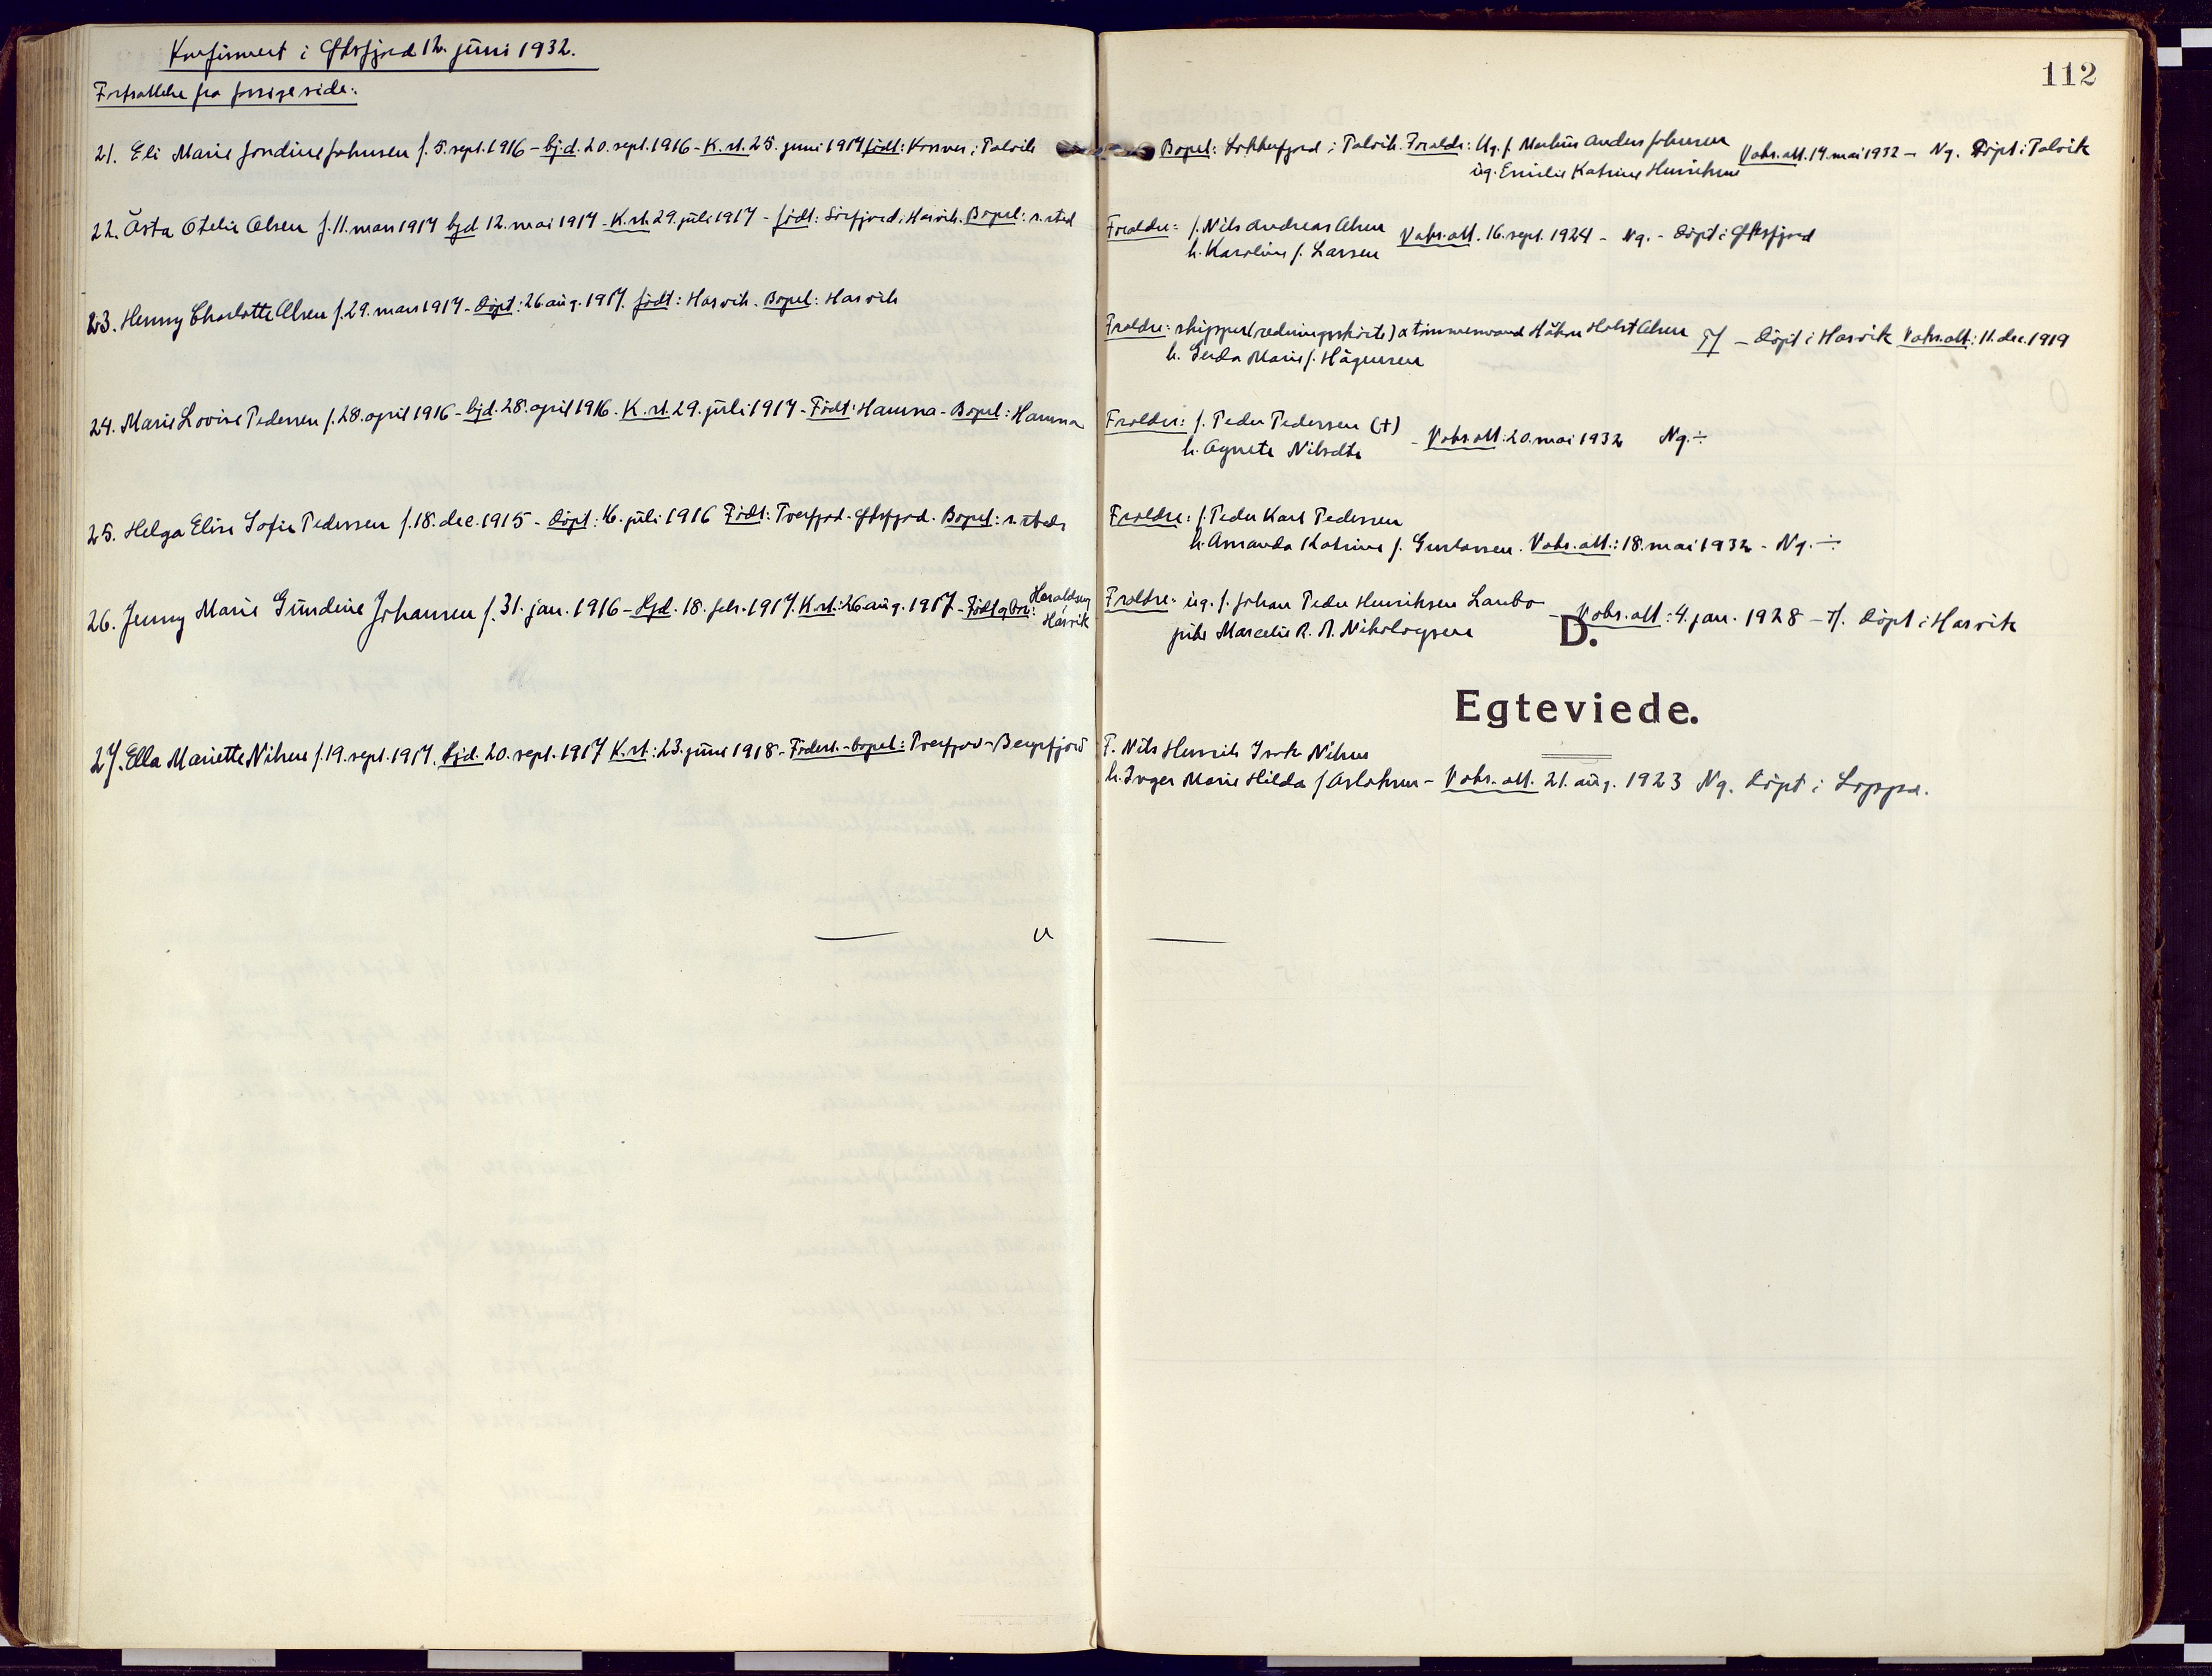 Konfirmert i Øksfjord 12. juni 1932.
Fortsættelse fra forrige side:
112
21. Eli Marie Jondine Johnsen f. 5. sept. 1916 – hjd. 20. sept. 1916 – K. st. 25. juni 1917 født: Korsnes i Talvik
Bopel: Lokkerfjord i Talvik. Foreldr: Ug. f. Markus Anders Johnsen
ug. Emilie Katrine Henriksen
Vaks. att. 14. mai 1932 – Ng. Døpt i Talvik
22. Åsta Otelie Olsen f. 11. mars 1917 hjd 12. mai 1917 – K. st. 29. juli 1917 – født: Sörfjord i Hasvik. Bopel: s. sted
Foreldre: f. Nils Andreas Olsen
h. Karoline f. Larsen
Vaks. att. 16. sept. 1924 – Ng. – døpt i Øksfjord
23. Henny Charlotte Olsen f. 29. mars 1917 – Døpt: 26 aug. 1917. født: Hasvik. Bopel: Hasvik
Foreldre: skipper (redningsskøite) & tömmermand Håkon Holst Olsen
h. Gerda Marie f. Hågensen
N – Døpt i Hasvik Vaks. att: 11. dec. 1919
24. Marie Lovise Pedersen f. 28. april 1916 – hjd. 28. april 1916 – K. st. 29. juli 1917 – Født: Hamna – Bopel: Hamna
Foreldre: f. Peder Pedersen (+)
h. Agnete Nilsdtr
– Vaks att: 20. mai 1932 Ng. ÷
25. Helga Elise Sofie Pedersen f. 18. dec. 1915 – Døpt: 16. juli 1916 Født: Tverfjord – Øksfjord. Bopel: s. steds
Foreldre: f. Peder Karl Pedersen
h. Amanda Katrine f. Gustavsen. Vaks. att.: 18. mai 1932 – Ng. ÷
26. Jenny Marie Gundine Johansen f. 31. jan. 1916 – Hjd. 18. feb. 1917. K. st.: 26 aug. 1917 – Født og bor: Haraldseng i Hasvik
Foreldre: ug. f. Johan Peder Henriksen Lanbo
pike Marcelie R. N. Nikolaysen
– Vaks. att: 4. jan. 1928 – N. døpt i Hasvik
D.
Egteviede.
27. Ella Mariette Nilsen f. 19. sept. 1917. hjd. 20. sept. 1917 K. st.: 23. juni 1918 – Födest. – bopel: Tverfjord – Bergsfjord
F. Nils Henrik Isak Nilsen
h. Inger Marie Hilda f. Aslaksen – Vaks. att. 21. aug. 1923 Ng. døpt i Loppa.